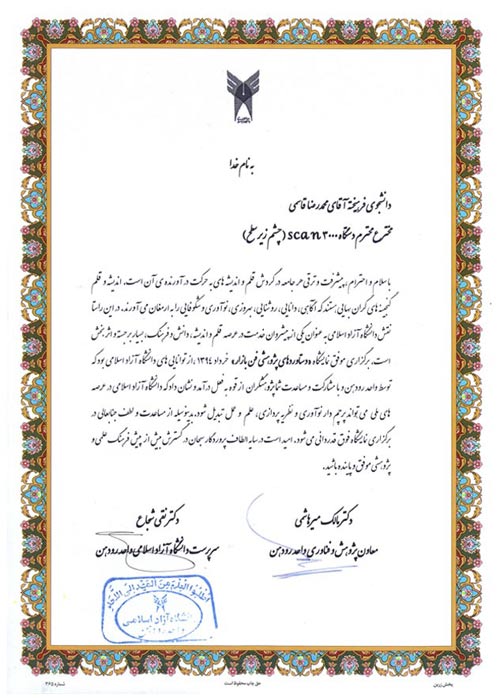 به نام خدا
دانشجوی فرهیخته آقای محمدرضا قاسمی
مخترع محترم دستگاه scan ۳۰۰۰ (چشم زیر سطح)
با سلام و احترام، پیشرفت و ترقی هر جامعه در گردش قلم و اندیشه های به حرکت در آورنده ی آن است. اندیشه و قلم
گنجینه های گران بهایی هستند که آگاهی، دانایی، روشنایی، بهروزی، نوآوری و شکوفایی را به ارمغان می آورند. در این راستا
نقش دانشگاه آزاد اسلامی به عنوان یکی از پیشروان خدمت در عرصه قلم و اندیشه، دانش و فرهنگ، بسیار برجسته و اثر بخش
است. برگزاری موفق نمایشگاه «دستاوردهای پژوهشی فن بازار» خرداد ۱۳۹۴ از توانایی های دانشگاه آزاد اسلامی بود که
توسط واحد رودهن و با مشارکت و مساعدت شما پژوهشگران از قوه به فعل درآمد و نشان داد که دانشگاه آزاد اسلامی در عرصه
های ملی می تواند پرچم دار نوآوری و نظریه پردازی، علم و عمل تبدیل شود. بدینوسیله از مساعدت و لطف جنابعالی در
برگزاری نمایشگاه فوق قدردانی می شود. امید است در سایه الطاف پروردگار سبحان در گسترش بیش از پیش فرهنگ علمی و
پژوهشی موفق و پاینده باشید.
دکتر مالک میرهاشمی
معاون پژوهش و فناوری واحد رودهن
دکتر نقی شجاع
سرپرست دانشگاه آزاد اسلامی واحد رودهن
اطلبوا العلم من المهد الی اللحد
دانشگاه آزاد اسلامی
واحد رودهن
پخش زرین
حق چاپ محفوظ است
شماره ۳۶۵